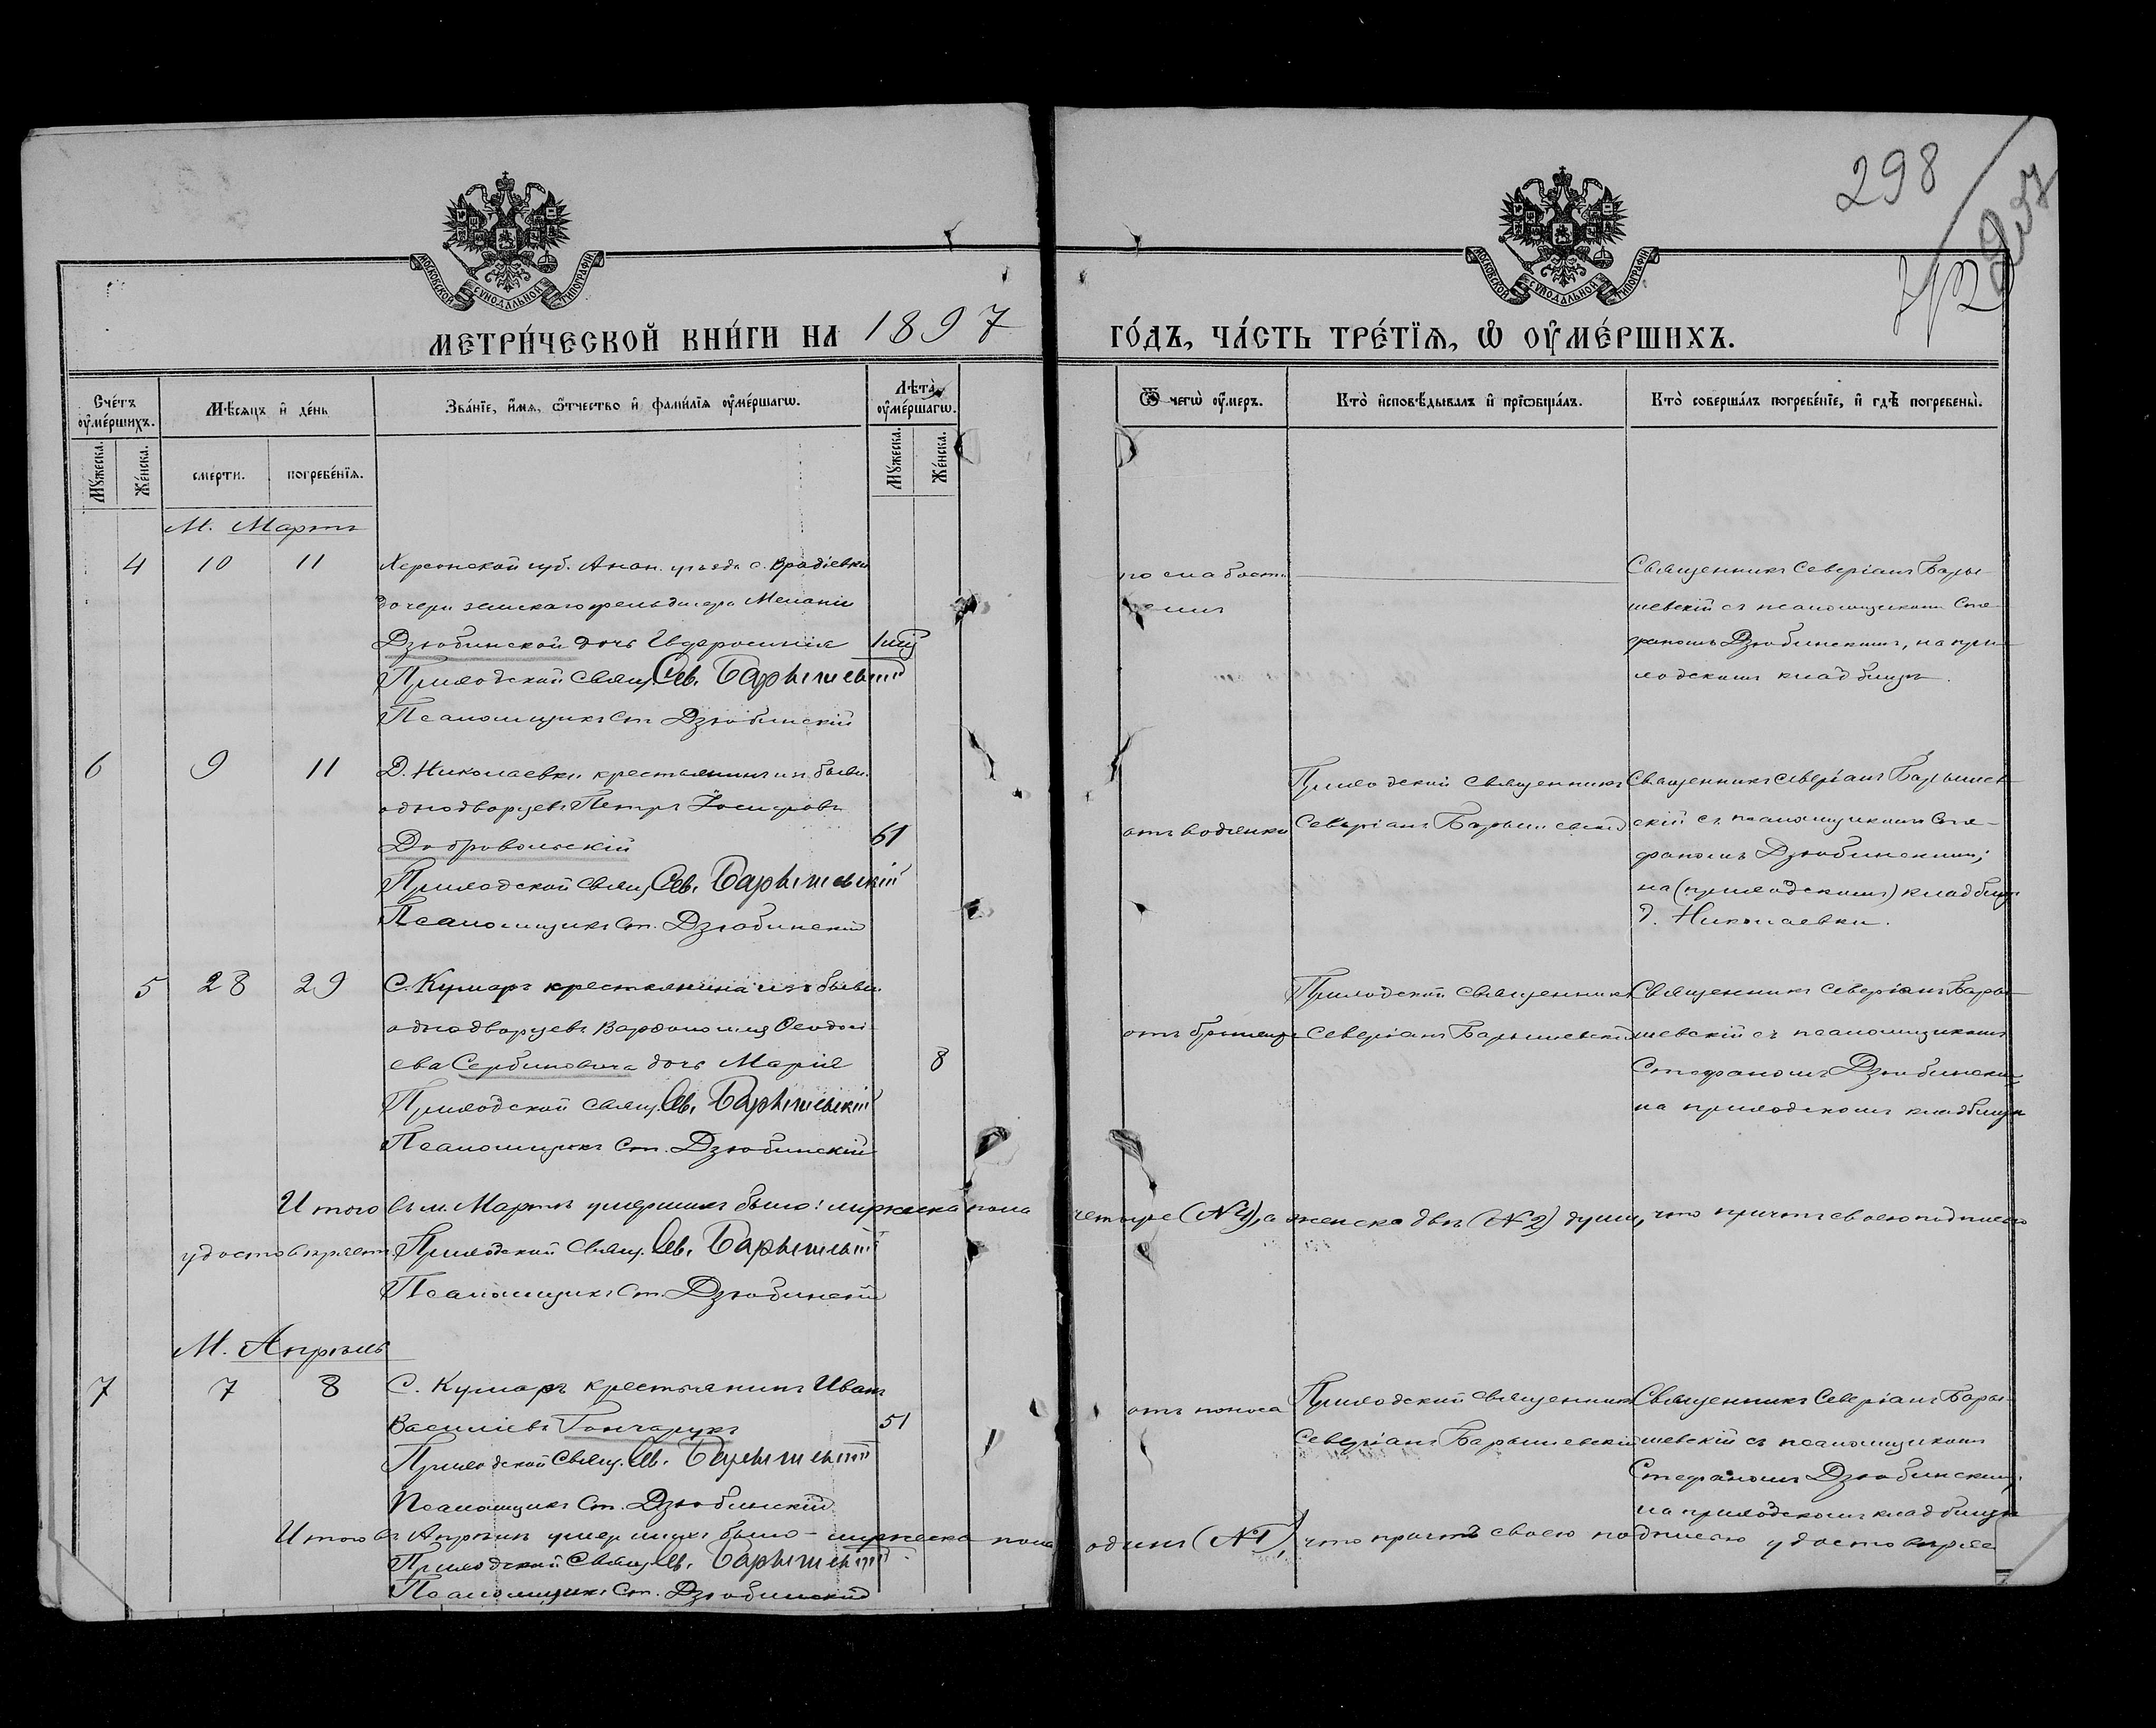 298
МОСКОВСКОЙ СУНОДАЛЬНОЙ ТИПОГРАФІИ
МОСКОВСКОЙ СУНОДАЛЬНОЙ ТИПОГРАФІИ
МЕТРИ́ЧЕСКОЙ КНИ́ГИ НА 1897 ГО́ДЪ, ЧА́СТЬ ТРЕ́ТЇѦ, Ѡ҆ ОУ҆МЕ́РШИХЪ.
Сче́тъ оу҆ме́ршихъ.
Мѣ́сѧцъ и҆ де́нь
Зва́нїе, и҆́мѧ, ѻ҆́тчество и҆ фами́лїѧ оу҆ме́ршагѡ.
Лѣ́та оу҆ме́ршагѡ.
Ѿ чегѡ̀ оу҆́меръ.
Кто̀ и҆сповѣ́дывалъ и҆ прїѡбща́лъ.
Кто̀ соверша́лъ погребе́нїе, и҆ гдѣ̀ погребены̀.
Мꙋ́жеска.
Же́нска.
сме́рти.
погребе́нїѧ.
Мꙋ́жеска.
Же́нска.
М. Мартъ
4 10 11
Херсонской губ. Анан. уѣзда с. Врадіевки
дочери Меланіи
Дзюбинской дочь
Приходской Свящ. Сев. Барышевскій
Псаломщикъ Ст. Дзюбинскій
по слабости
Священникъ Северіанъ Бары-
шевскій съ псаломщикомъ Сте-
фаномъ Дзюбинскимъ, на при-
ходскомъ кладбищѣ.
6 9 11
Д. Николаевки крестьянинъ изъ бывш.
однодворцевъ Петръ Іосифовъ
Добровольскій 61
Приходской Свящ. Сев. Барышевскій
Псаломщикъ Ст. Дзюбинскій
отъ водянки
Приходскій Священникъ
Северіанъ Барышевскій
Священникъ Северіанъ Барышев-
скій съ псаломщикомъ Сте-
фаномъ Дзюбинскимъ;
на (приходскомъ) кладбищѣ
д. Николаевки.
5 28 29
С. Кумаръ крестьянина изъ бывш.
однодворцевъ Варѳоломея Ѳеодосі-
ева Сербиновича дочь Марія 8
Приходской Свящ. Сев. Барышевскій
Псаломщикъ Ст. Дзюбинскій
отъ
Приходскій Священникъ
Северіанъ Барышевскій
Священникъ Северіанъ Бары-
шевскій съ псаломщикомъ
Стефаномъ Дзюбинскимъ
на приходскомъ кладбищѣ
Итого въ м. Мартѣ умершихъ было: мужеска пола четыре (№ 4), а женска двѣ (№ 2) души, что причтъ своею подписью
удостовѣряетъ. Приходской Свящ. Сев. Барышевскій
Псаломщикъ Ст. Дзюбинскій
М. Апрѣль
7 7 8
С. Кумаръ крестьянинъ Иванъ
Василіевъ Гончарукъ 51
Приходской Свящ. Сев. Барышевскій
Псаломщикъ Ст. Дзюбинскій
отъ поноса
Приходскій Священникъ
Северіанъ Барышевскій
Священникъ Северіанъ Бары-
шевскій съ псаломщикомъ
Стефаномъ Дзюбинскимъ,
на приходскомъ кладбищѣ
Итого въ Апрѣлѣ умершихъ было - мужеска пола одинъ (№ 1), что причтъ своею подписью удостовѣряе
Приходской Свящ. Сев. Барышевскій
Псаломщикъ Ст. Дзюбинскій